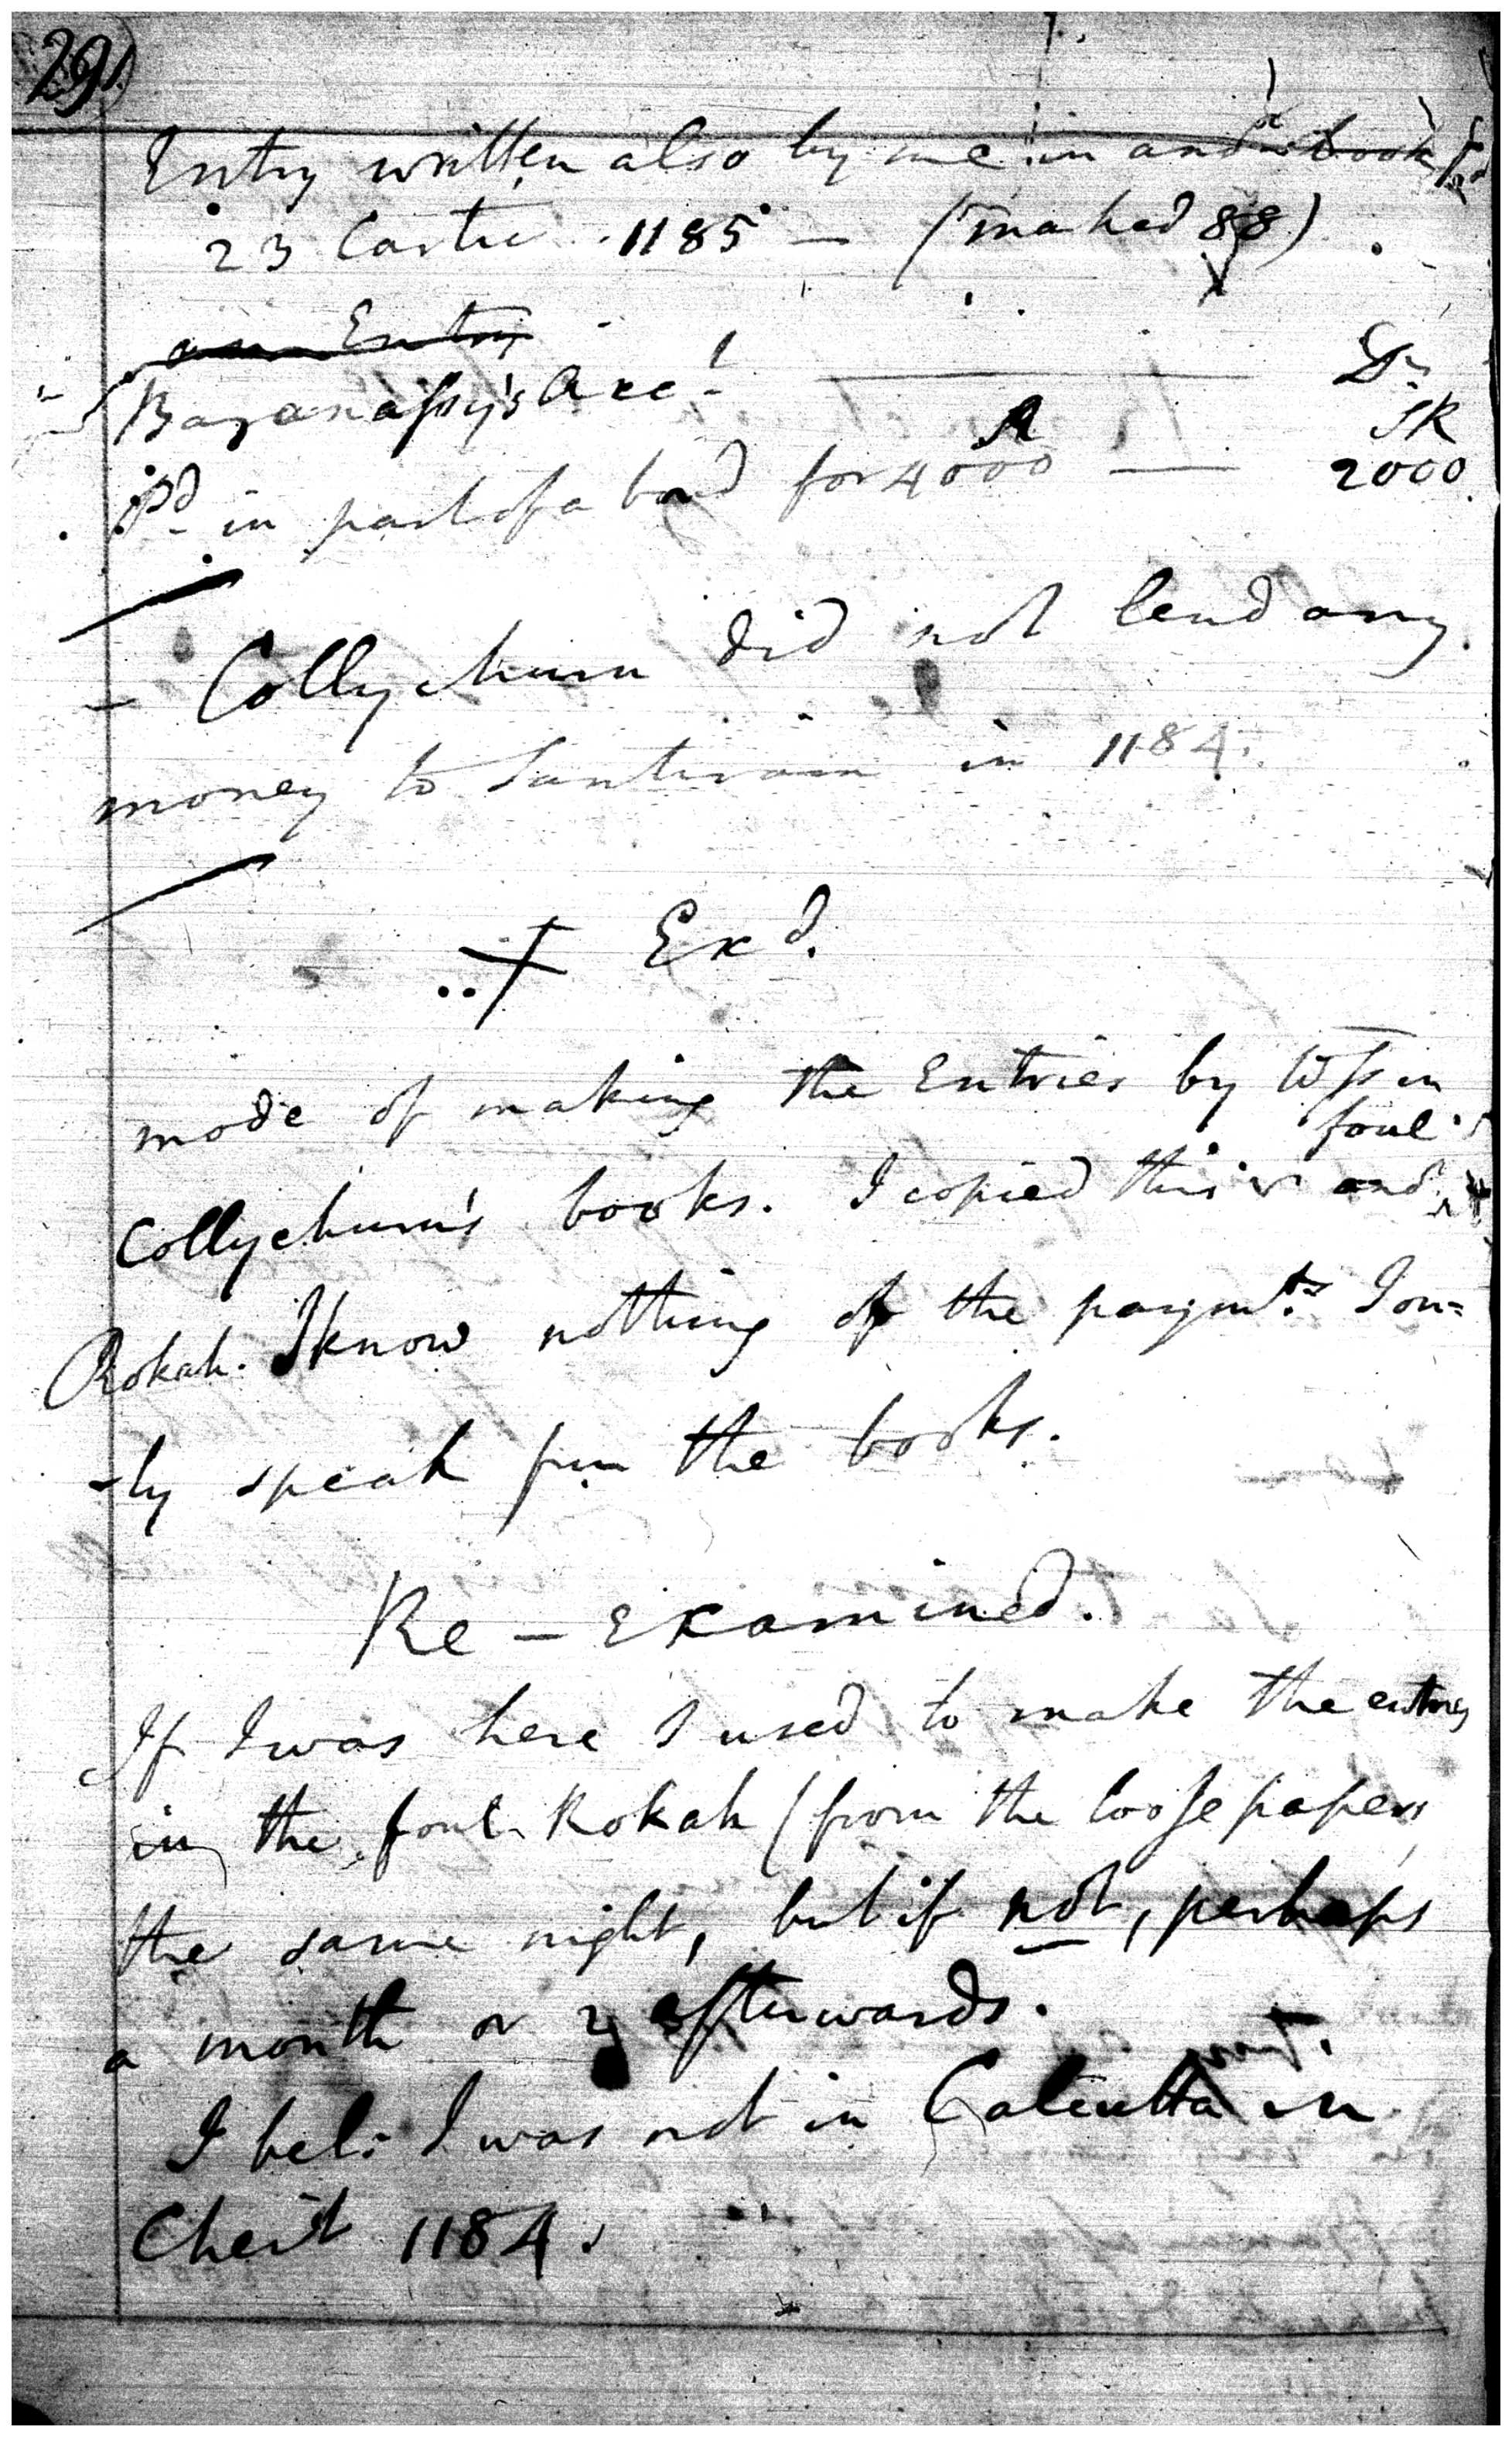 29
Entry written also by me in and book
23 Cartic 1185 — (marked 88)
Entry
Baranassy's Acct. — Dr
R SR
Pd in part of a bond for 4000 — 2000
— Collychurn did not lend any
money to Santiram in 1184.
X Exd.
mode of making the Entries by Wss in
foul
Collychurn's books. I copied this and
Rokah. I know nothing of the paymts. I on=
-ly speak from the books.
Re-Examined.
If I was here I used to make the entries
in the foul Rokah (from the loose papers
the same night, but if not, perhaps
a month or 2 afterwards.
I bel: I was not in Calcutta in
Cheit 1184.